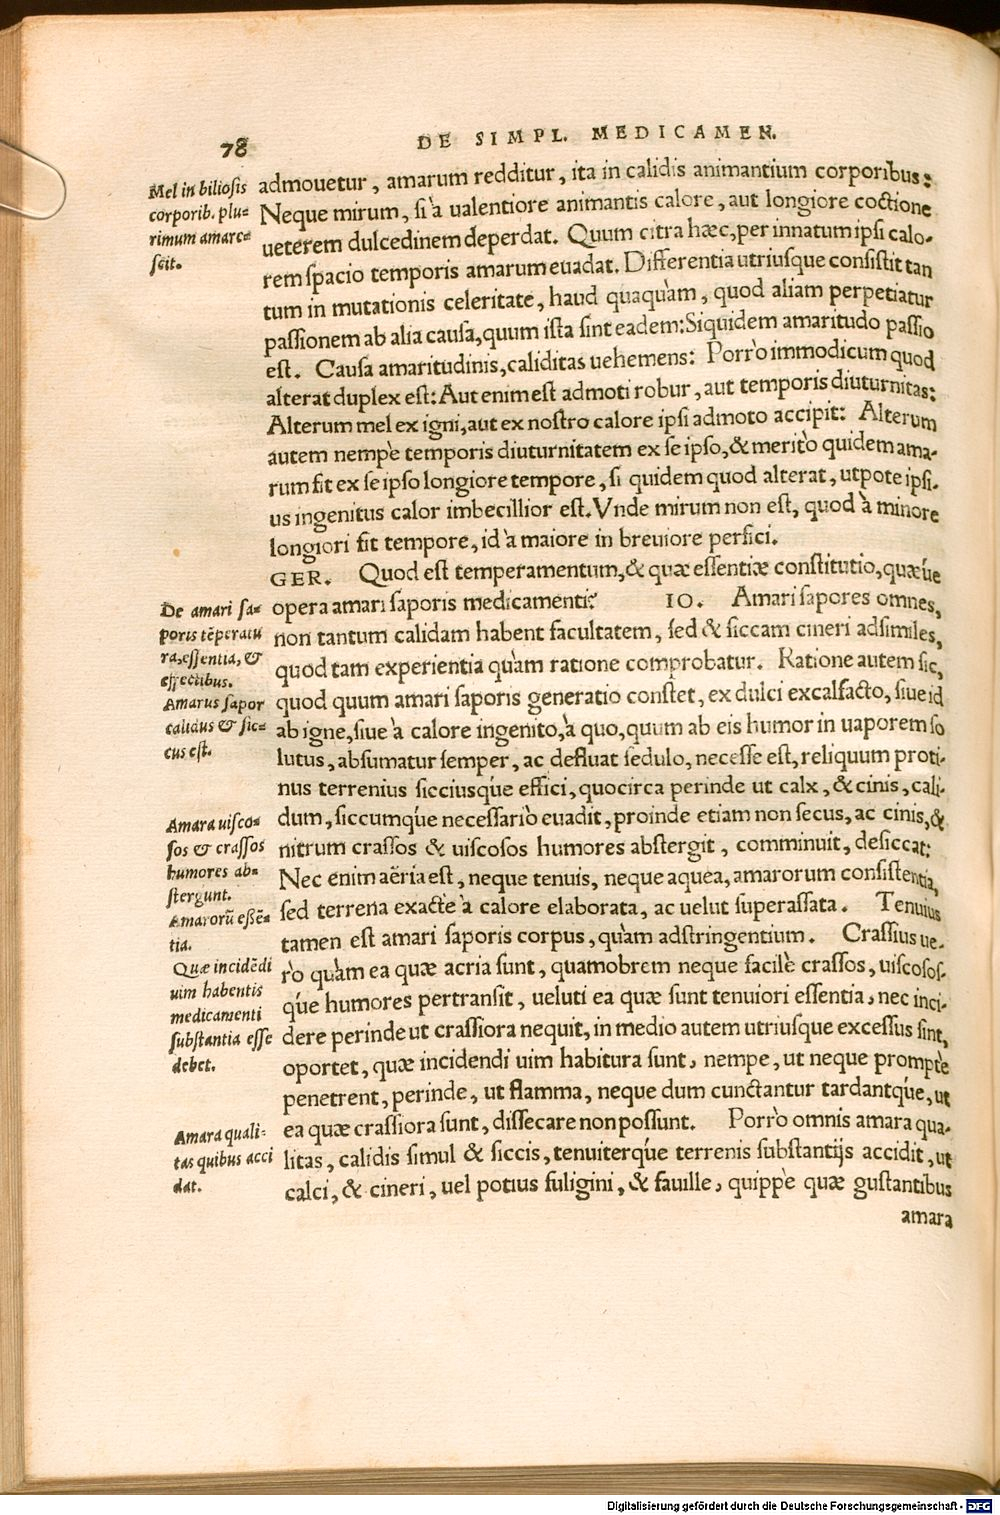 78
DE SIMPL. MEDICAMEN.
Mel in biliosis
corporib. plu=
rimum amare=
scit.
admouetur, amarum redditur, ita in calidis animantium corporibus:
Neque mirum, si à ualentiore animantis calore, aut longiore coctione
ueterem dulcedinem deperdat. Quum citra hæc, per innatum ipsi calo-
rem spacio temporis amarum euadat. Differentia utriusque consistit tan
tum in mutationis celeritate, haud quaquàm, quod aliam perpetiatur
passionem ab alia causa, quum ista sint eadem: Siquidem amaritudo passio
est. Causa amaritudinis, caliditas uehemens: Porrò immodicum quod
alterat duplex est: Aut enim est admoti robur, aut temporis diuturnitas:
Alterum mel ex igni, aut ex nostro calore ipsi admoto accipit: Alterum
autem nempè temporis diuturnitatem ex se ipso, & meritò quidem ama-
rum fit ex se ipso longiore tempore, si quidem quod alterat, utpote ipsi-
us ingenitus calor imbecillior est. Vnde mirum non est, quod à minore
longiori fit tempore, id à maiore in breuiore perfici.
GER. Quod est temperamentum, & quæ essentiæ constitutio, quæúe
opera amari saporis medicamenti? 10. Amari sapores omnes,
De amari sa=
poris tēperatu
ra, essentia, &
effectibus.
Amarus sapor
calidus & sic=
cus est.
non tantum calidam habent facultatem, sed & siccam cineri adsimiles,
quod tam experientia quàm ratione comprobatur. Ratione autem sic,
quod quum amari saporis generatio constet, ex dulci excalfacto, siue id
ab igne, siue à calore ingenito, à quo, quum ab eis humor in uaporem so
lutus, absumatur semper, ac defluat sedulo, necesse est, reliquum proti-
nus terrenius sicciusq́ue effici, quocirca perinde ut calx, & cinis, cali-
dum, siccumq́ue necessariò euadit, proinde etiam non secus, ac cinis, &
nitrum crassos & uiscosos humores abstergit, comminuit, desiccat:
Amara uisco=
sos & crassos
humores ab=
stergunt.
Amarorū eßē=
tia.
Nec enim aëria est, neque tenuis, neque aquea, amarorum consistentia,
sed terrena exactè à calore elaborata, ac uelut superassata. Tenuius
tamen est amari saporis corpus, quàm adstringentium. Crassius ue-
Quæ incidēdi
uim habentis
medicamenti
substantia esse
debet.
rò quàm ea quæ acria sunt, quamobrem neque facilè crassos, uiscosos-
q́ue humores pertransit, ueluti ea quæ sunt tenuiori essentia, nec inci-
dere perinde ut crassiora nequit, in medio autem utriusque excessus sint,
oportet, quæ incidendi uim habitura sunt, nempe, ut neque promptè
penetrent, perinde, ut flamma, neque dum cunctantur tardantq́ue, ut
ea quæ crassiora sunt, dissecare non possunt. Porrò omnis amara qua-
Amara quali=
tas quibus acci
dat.
litas, calidis simul & siccis, tenuiterq́ue terrenis substantijs accidit, ut
calci, & cineri, uel potius fuligini, & fauillę, quippè quæ gustantibus
amara
Digitalisierung gefördert durch die Deutsche Forschungsgemeinschaft - DFG